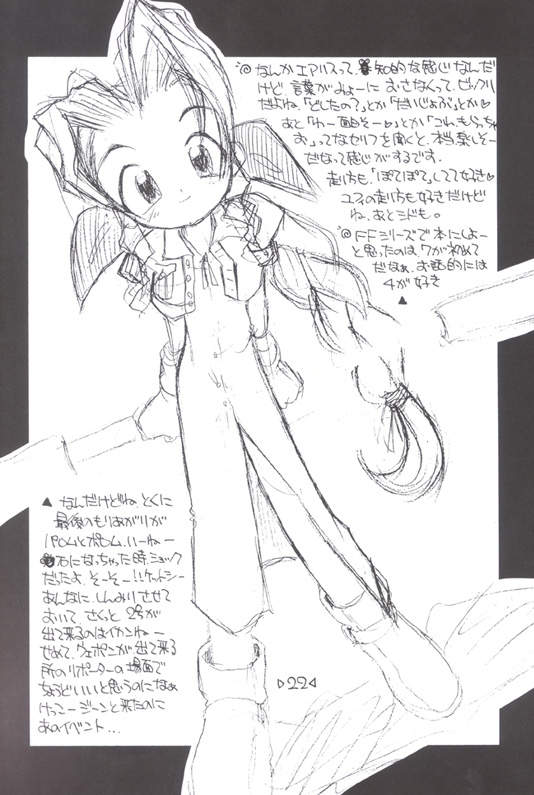 ◎なんかエアリスって、知的な感じなんだ
けど、言葉がみょーにおさなくって、ビックリ
だよね。「どしたの?」とか「だいじょぶ」とか♡
あと「わー面白そー♡」とか「コレ、もらっちゃ
お」ってなセリフを聞くと、本当楽しそー
だなって感じがするです。
走り方も、「ぽてぽて」してて好き♡
ユフィの走り方も好きだけど
ね、あとシドも。
◎FFシリーズで本にしよー
と思ったのは7が初めて
だなぁ。お話的には
4が好き
▲
▲ なんだけどね、とくに
最後のもりあがりが
パロムとポロム、いーねー
石になっちゃった時、ショック
だったよ。そーそー!!ケットシー
あんなに、しんみりさせて
おいて、さくっと2号が
出て来るのはイカンねー
せめて、ウェポンが出て来る
所のリポーターの場面で
ちょうどいいと思うのになぁ
けっこージーンと来たのに
あのイベント...
▷22◁